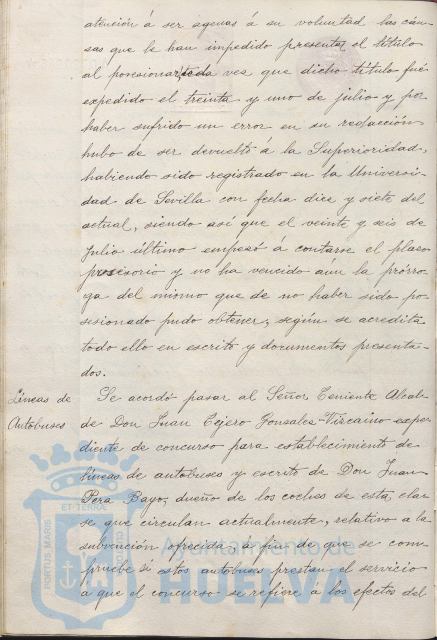 atención á ser agenas á su voluntad las cau-
sas que le han impedido presentar el título
al posesionar, toda vez que dicho título fué
expedido el treinta y uno de julio y por
haber sufrido un error en su redacción
hubo de ser devuelto a la Superioridad,
habiendo sido registrado en la Universi-
dad de Sevilla con fecha diez y siete del
actual, siendo así que el veinte y seis de
Julio último empesó á contarse el plaso
posesorio y no ha vencido aún la prórro-
ga del mismo que de no haber sido po-
sesionado pudo obtener, según se acredita
todo ello en escrito y documentos presenta-
dos.
Lineas de
Autobuses
Se acordó pasar al Señor Teniente Alcal-
de Don Juan Tejero Gonsales-Viscaino expe-
diente de concurso para establecimiento de
lineas de autobuses y escrito de Don Juan
Pera Bayo, dueño de los coches de esta cla-
se que circulan actualmente, relativo a la
subvención ofrecida, a fin de que se com-
pruebe si estos autobuses prestan el servicio
a que el concurso se refiere á los efectos del
PORTUS MARIS
ET TERRAE
Ayuntamiento de
HUELVA